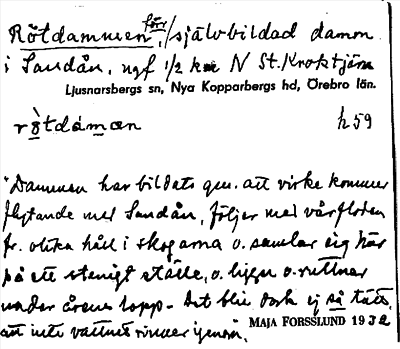 Rötdammen, förr, självbildad damm
i Sandån, ngf 1/2 km N St. Kroktjärn
Ljusnarsbergs sn, Nya Kopparbergs hd, Örebro län.
rò̱tdáma̱n h59
"Dammen har bildats gm. att virke kommer
flytande med Sandån, följer med vårfloden
fr. olika håll i skogarna o. samlar sig här
på ett stenigt ställe, o. ligger o. ruttnar
under årens lopp - Det blir dock ej så tätt,
att inte vattnet rinner igenom".
MAJA FORSSLUND 1932